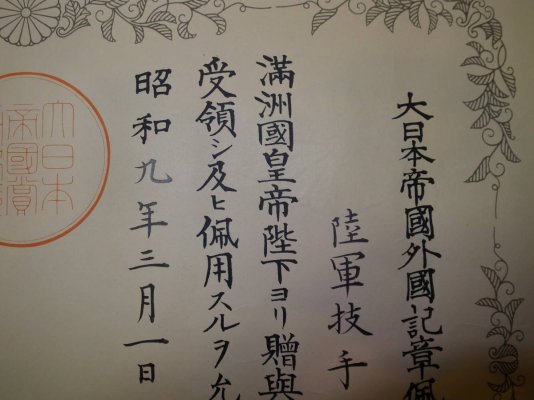 大日本帝國外國記章佩
陸軍技手
滿洲國皇帝陛下ヨリ贈與
受領シ及ヒ佩用スルヲ允
昭和九年三月一日
大日本
帝國賞